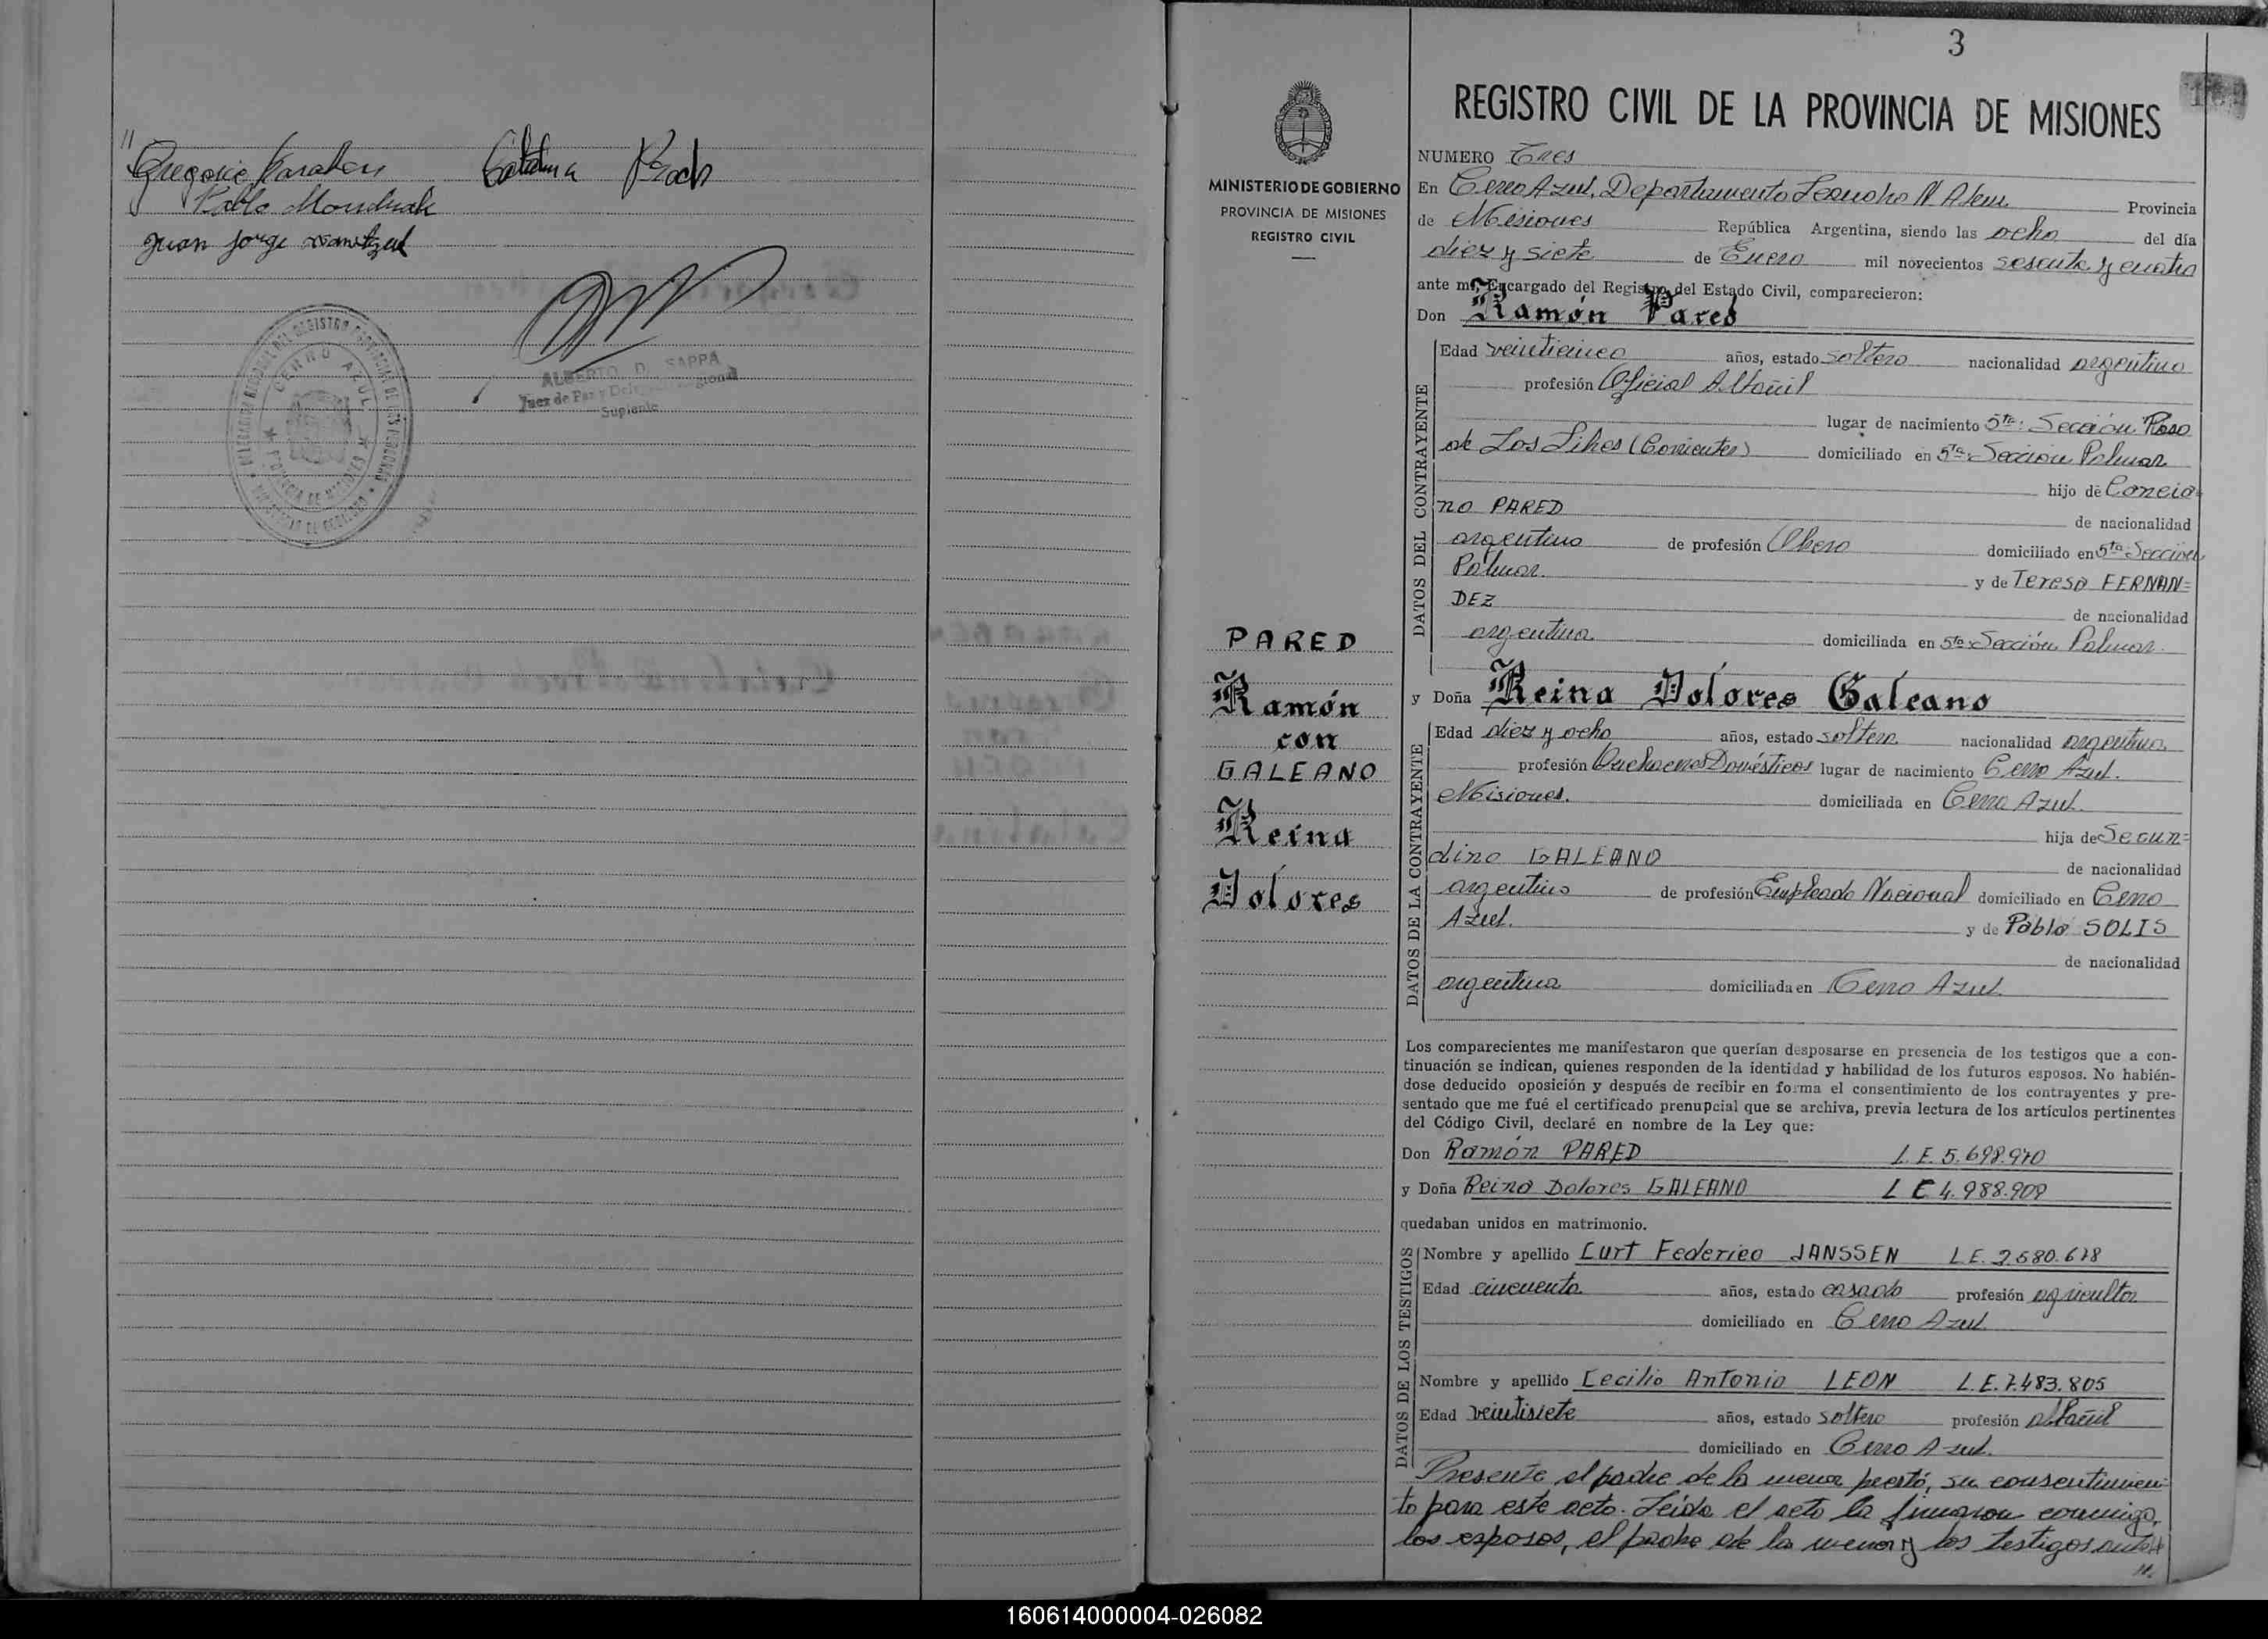 "
Gregorio Karaben Catalina Proch
Pablo Mondzak
Juan Jorge
CERRO AZUL
ALBERTO D. SAPPA
Juez de Paz y Delegado Regional
Suplente
3
REGISTRO CIVIL DE LA PROVINCIA DE MISIONES
MINISTERIO DE GOBIERNO
PROVINCIA DE MISIONES
REGISTRO CIVIL
PARED
Ramón
con
GALEANO
Reina
Dolores
NUMERO Tres
En Cerro Azul, Departamento Leandro N Alem Provincia
de Misiones República Argentina, siendo las ocho del día
diez y siete de Enero mil novecientos sesenta y cuatro
ante mí, Encargado del Registro del Estado Civil, comparecieron:
Don Ramón Pared
DATOS DEL CONTRAYENTE
Edad veinticinco años, estado soltero nacionalidad argentino
profesión Oficial Albañil
lugar de nacimiento 5ta: Sección Paso
de Los Libres (Corrientes) domiciliado en 5ta: Sección Palmar
hijo de Concia=
no PARED
de nacionalidad
argentino de profesión Obrero domiciliado en 5ta Sección
Palmar. y de Teresa FERNAN=
DEZ
de nacionalidad
argentina domiciliada en 5ta Sección Palmar.
y Doña Reina Dolores Galeano
DATOS DE LA CONTRAYENTE
Edad diez y ocho años, estado soltera nacionalidad argentina
profesión Quehaceres Domésticos lugar de nacimiento Cerro Azul.
Misiones. domiciliada en Cerro Azul.
hija de Segun=
dino GALEANO
de nacionalidad
argentino de profesión Empleado Nacional domiciliado en Cerro
Azul. y de Pabla SOLIS
de nacionalidad
argentina domiciliada en Cerro Azul.
Los comparecientes me manifestaron que querían desposarse en presencia de los testigos que a con-
tinuación se indican, quienes responden de la identidad y habilidad de los futuros esposos. No habién-
dose deducido oposición y después de recibir en forma el consentimiento de los contrayentes y pre-
sentado que me fué el certificado prenupcial que se archiva, previa lectura de los artículos pertinentes
del Código Civil, declaré en nombre de la Ley que:
Don Ramón PARED L. E. 5.698.970
y Doña Reina Dolores GALEANO L C 4.988.909
quedaban unidos en matrimonio.
DATOS DE LOS TESTIGOS
Nombre y apellido Curt Federico JANSSEN L.E.
Edad cincuenta años, estado casado profesión agricultor
domiciliado en Cerro Azul
Nombre y apellido Cecilio Antonio LEON L.E. 7.483.805
Edad veintisiete años, estado soltero profesión albañil
domiciliado en Cerro Azul.
Presente el padre de la menor prestó, su consentimien-
to para este acto. Leída el acta la firmaron conmigo,
los esposos, el padre de la menor y los testigos
160614000004-026082